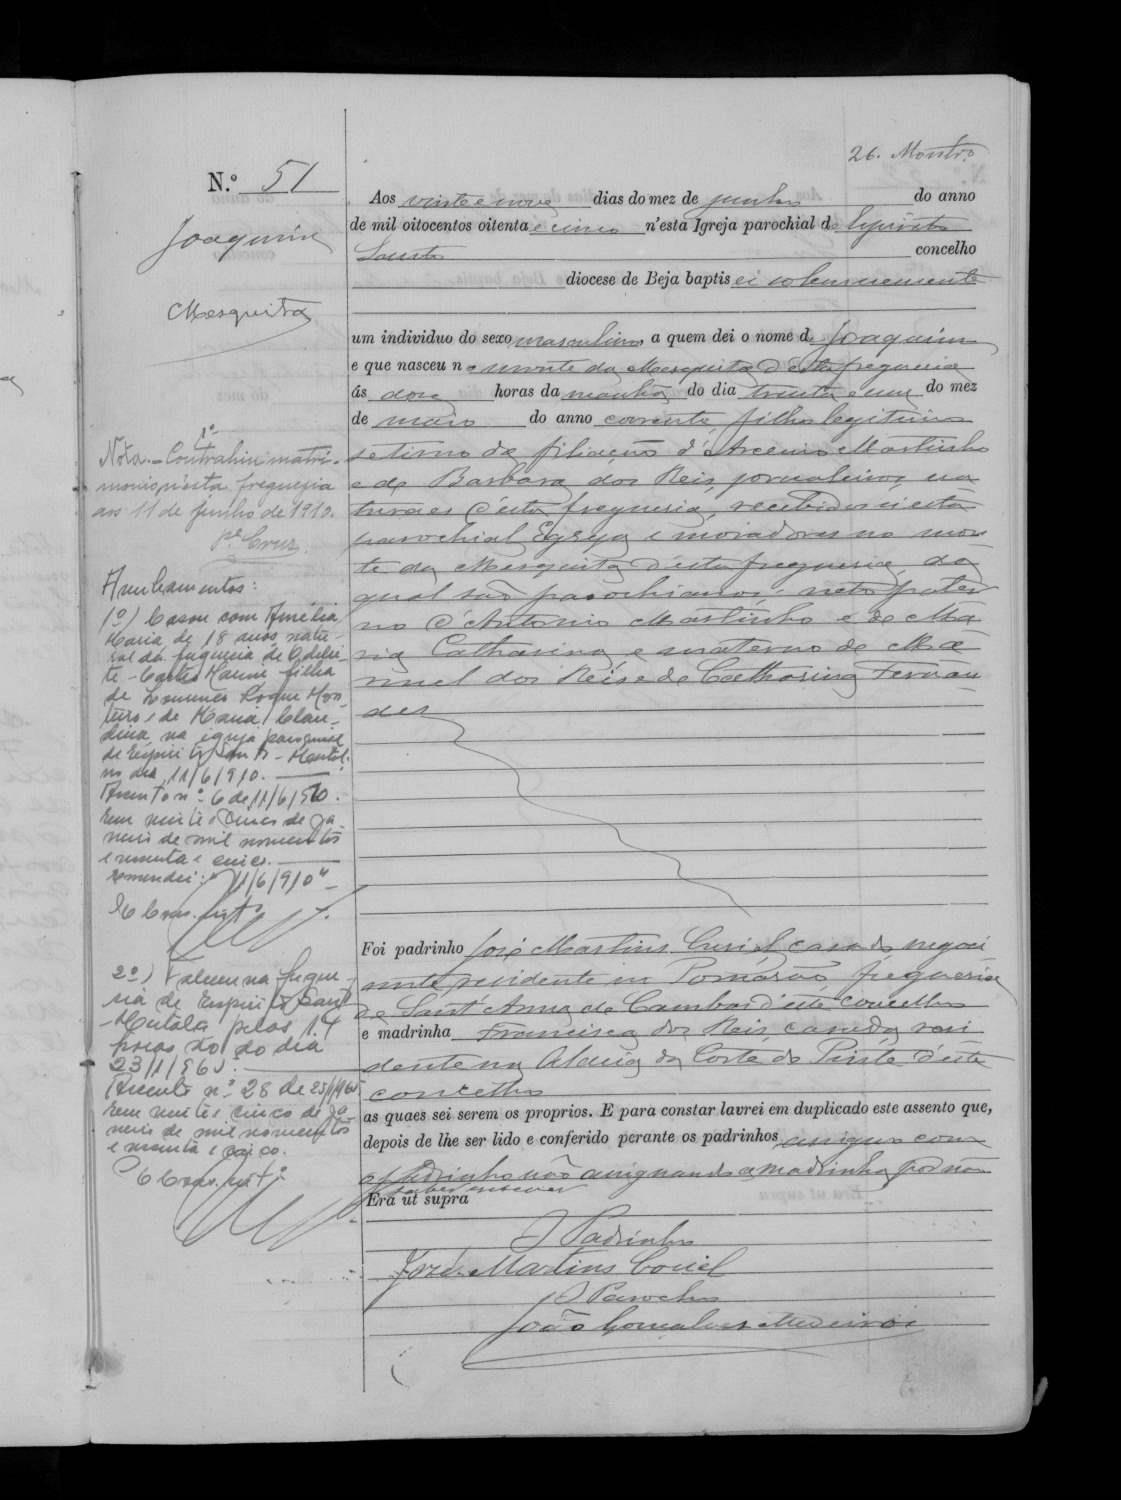 26. Montr.º
N.º 51
Joaquim
Mesquita
Aos vinte e nove dias do mez de junho do anno
de mil oitocentos oitenta e cinco n'esta Igreja parochial do Espirito
Santo concelho
diocese de Beja baptisei solemnemente
um individuo do sexo masculino, a quem dei o nome de Joaquim
e que nasceu no monte da Mesquita d'esta freguesia
ás doze horas da manhã do dia trinta e um do mez
de maio do anno corrente, filho legitimo
setimo de filiação d'Arcenio Martinho
e de Barbara dos Reis, jornaleiros, na
turaes d'esta freguesia, recebidos n'esta
parochial Egreja e moradores no mon
te da Mesquita d'esta freguesia, da
qual são parochianos: neto pater
no d'Antonio Martinho e de Ma
ria Catharina e materno de Ma
nuel dos Reis e de Catharina Fernan
des
Foi padrinho José Martins casado negoci
ante, residente em Pomarão, freguesia
de Sant'Anna de Cambas d'este concelho
e madrinha Francisca dos Reis, casada, resi
dente na Aldeia da Corte do Pinto d'este
concelho
as quaes sei serem os proprios. E para constar lavrei em duplicado este assento que,
depois de lhe ser lido e conferido perante os padrinhos, assigno com
o padrinho não assignando a madrinha por não
saber escrever
Era ut supra
O Padrinho
José Martins
O Parocho
João Gonçalves Medeiros
Nota.- 1º Contrahiu matri-
monio n'esta freguesia
aos 11 de Junho de 1910.
P.e Cruz
Averbamentos:
1º) Casou com Amélia
Maria de 18 anos natu-
ral da freguesia de
filha
de Roque Mon-
teiro e de Maria Clau-
dina, na igreja paroquial
de Espirito Santo - Mertola
no dia 11/6/910.
Assento nº 6 de 11/6/910.
Em vinte e cinco de Ja-
neiro de mil novecentos
e sessenta e cinco.
emendei: "11/6/910"
2º) Faleceu na fregue-
sia de Espirito Santo
- Mertola pelas 14
horas do dia
23/1/965.
Assento nº 28 de 25/1/965
Em vinte e cinco de Ja-
neiro de mil novecentos
e sessenta e cinco.